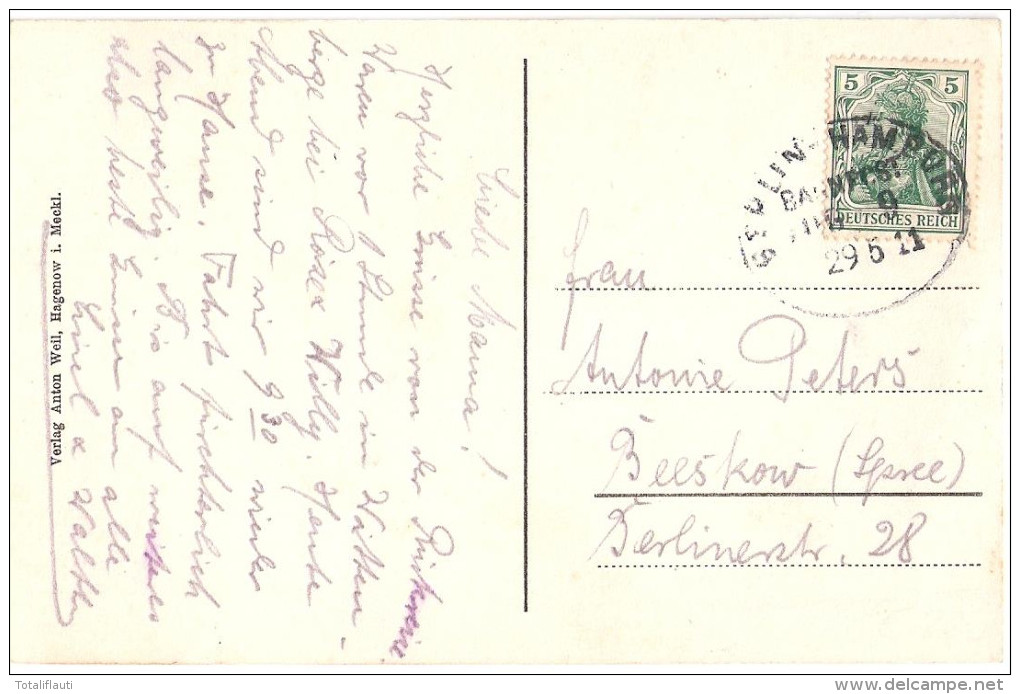 Liebe Mama!
Herzliche Grüsse von der Rückreise
Waren vor 1 Stunde in Witten-
berge bei Rosa & Willy. Heute
Abend sind wir 9 30 wieder
zu Hause. Fahrt furchtbar
langweilig. Bis auf weiteres
also beste Grüsse an alle
& Walther
Verlag Anton Weil, Hagenow i. Meckl.
5 5
DEUTSCHES REICH
BERLIN-HAMBURG
BAHNPOST
ZUG 9
29 5 11
Frau
Antonie Peters
Beeskow (Spree)
Berlinerstr. 28
Totaliflauti
www.delcampe.net